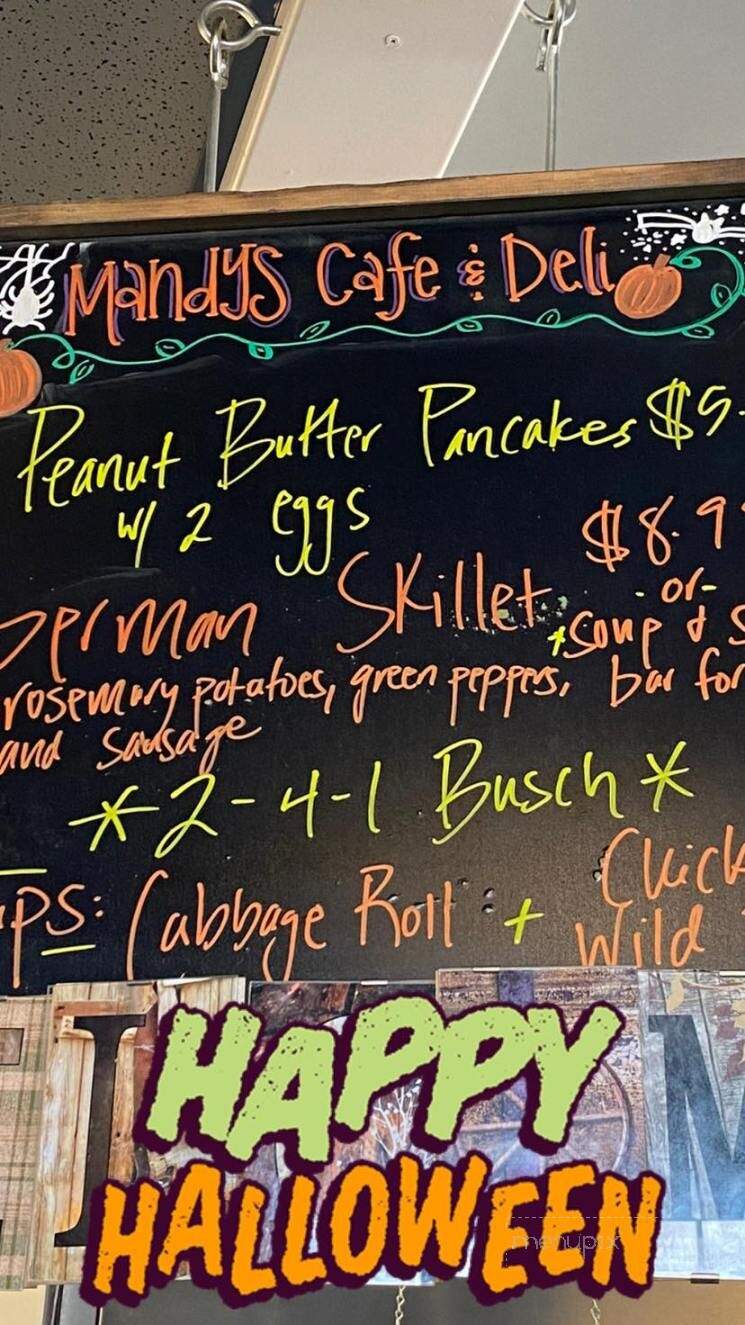 Mandys Cafe & Deli
Peanut Butter Pancakes $5.
w/ 2 eggs
$8.9
German Skillet -or-
+Soup & S
rosemary potatoes, green peppers, bar for
and Sausage
*2-4-1 Busch*
ups: Cabbage Roll + Chick
Wild
HAPPY
HALLOWEEN
menupix